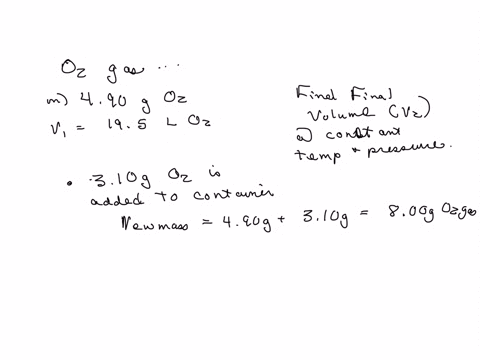 O2 gas ...
m) 4.90 g O2
V1 = 19.5 L O2
Final Final
Volume (V2)
@ constant
temp + pressure.
• 3.10g O2 is
added to container
New mass = 4.90g + 3.10g = 8.00g O2 gas